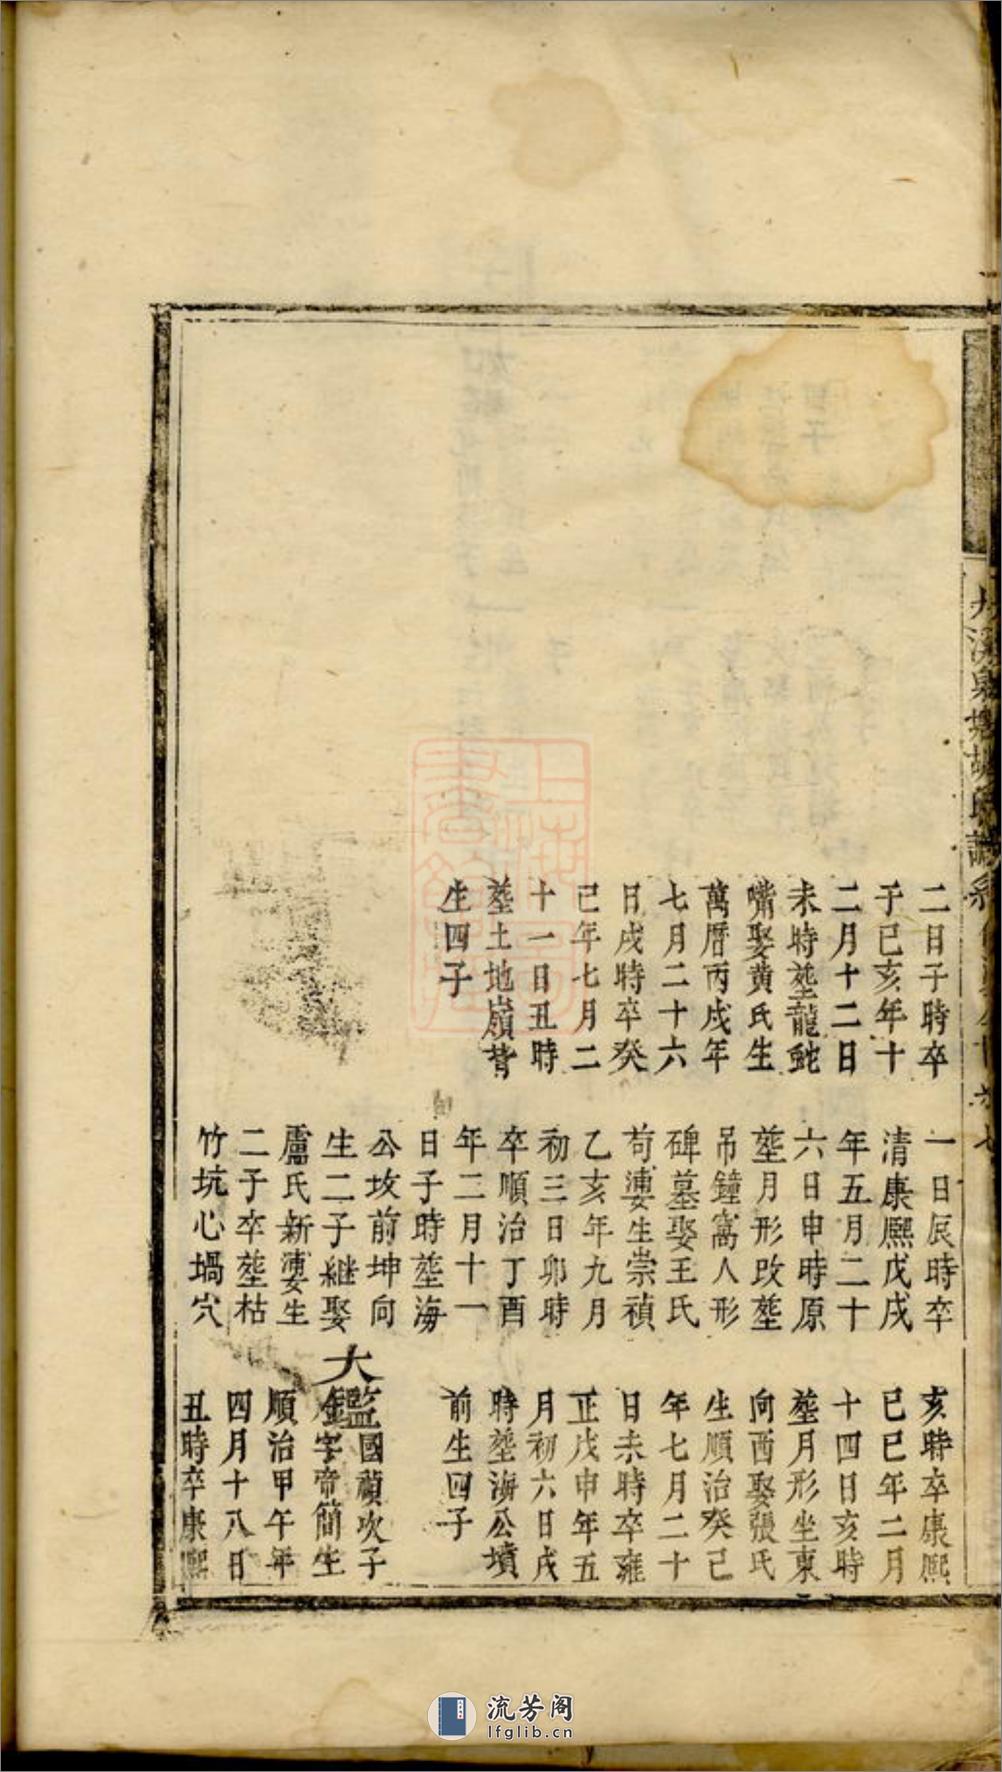 二日子時卒
于己亥年十
二月十二日
未時塟龍鮀
嘴娶黄氏生
萬曆丙戌年
七月二十六
日戌時卒癸
己年七月二
十一日丑時
塟土地嶺背
生四子
一日辰時卒
清康熙戊戌
年五月二十
六日申時原
塟月形改塟
吊鐘窩人形
碑墓娶王氏
苟漊生崇禎
乙亥年九月
初三日卯時
卒順治丁酉
年二月十一
日子時塟海
公坟前坤向
生二子継娶
盧氏新漊生
二子卒塟枯
竹坑心堝穴
亥時卒康熙
已巳年二月
十四日亥時
塟月形坐東
向酉娶張氏
生順治癸己
年七月二十
日未時卒雍
正戊申年五
月初六日戌
時塟海公墳
前生四子
大鑑
國禎次子
字帝簡生
順治甲午年
四月十八日
丑時卒康熙
流芳阁
lfglib.cn